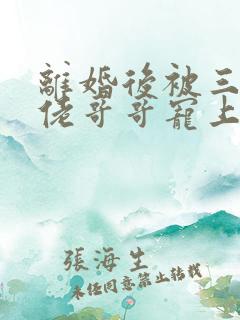 離婚後被三
佬哥哥寵上
張海生
未经同意禁止转载